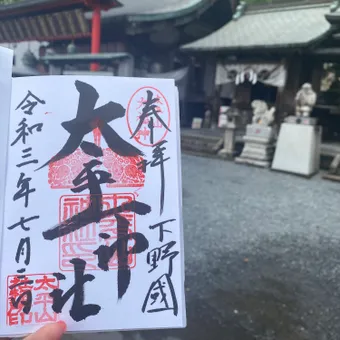 奉拝 下野國
太平山神社
令和三年七月
太平山